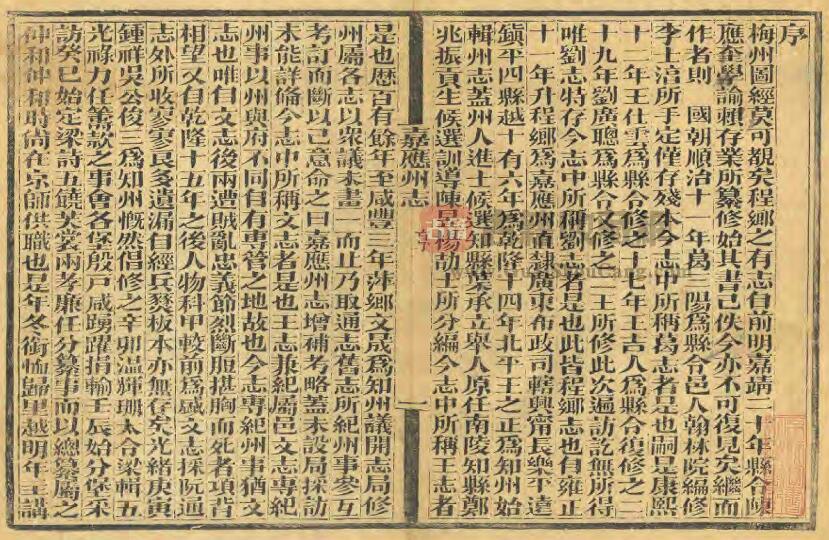 序
梅州圖經莫可覩矣程鄉之有志自前明嘉靖二十年縣令陳
應奎學諭賴存業所纂修始其書已佚今亦不可復見矣繼而
作者則　國朝順治十一年葛三陽為縣令邑人翰林院編修
李士淳所手定僅存殘本今志中所稱葛志者是也嗣是康熙
十二年王仕雲為縣令修之十七年王吉人為縣令復修之二
十九年劉廣聰為縣令又修之二王所修此次遍訪訖無所得
唯劉志特存今志中所稱劉志者是也此皆程鄉志也自雍正
十一年升程鄉為嘉應州直隸廣東布政司轄興甯長樂平遠
鎮平四縣越十有六年為乾隆十四年北平王之正為知州始
輯州志蓋州人進士候選知縣葉承立舉人原任南陵知縣鄭
兆振貢生候選訓導陳昌楊劼士所分編今志中所稱王志者
嘉應州志
序
一
是也歴百有餘年至咸豐三年萍鄉文晟為知州議開志局修
州屬各志以衆議未畫一而止乃取通志舊志所紀州事參互
考訂而斷以己意命之曰嘉應州志增補考略蓋未設局採訪
未能詳備今志中所稱文志者是也王志兼紀屬邑文志專紀
州事以州與府不同自有專管之地故也今志專紀州事猶文
志也唯自文志後兩遭賊亂忠義節烈斷脰揕胸而死者項背
相望又自乾隆十五年之後人物科甲較前為盛文志採阮通
志外所收寥寥良多遺漏自經兵燹板本亦無存矣光緒庚寅
鍾祥吳公俊三為知州慨然倡修之辛卯溫輝珊太令梁輯五
光祿力任籌款之事會各堡殷戸咸踴躍捐輸壬辰始分堡采
訪癸巳始定梁詩五饒芙裳兩孝廉任分纂事而以總纂屬之
仲和仲和時尚在京師供職也是年冬銜恤歸里越明年主講